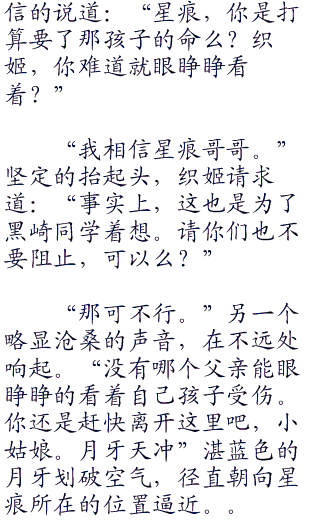 信的说道：“星痕，你是打
算要了那孩子的命么？织
姬，你难道就眼睁睁看
着？”
“我相信星痕哥哥。”
坚定的抬起头，织姬请求
道：“事实上，这也是为了
黑崎同学着想。请你们也不
要阻止，可以么？”
“那可不行。”另一个
略显沧桑的声音，在不远处
响起。“没有哪个父亲能眼
睁睁的看着自己孩子受伤。
你还是赶快离开这里吧，小
姑娘。月牙天冲”湛蓝色的
月牙划破空气，径直朝向星
痕所在的位置逼近。。